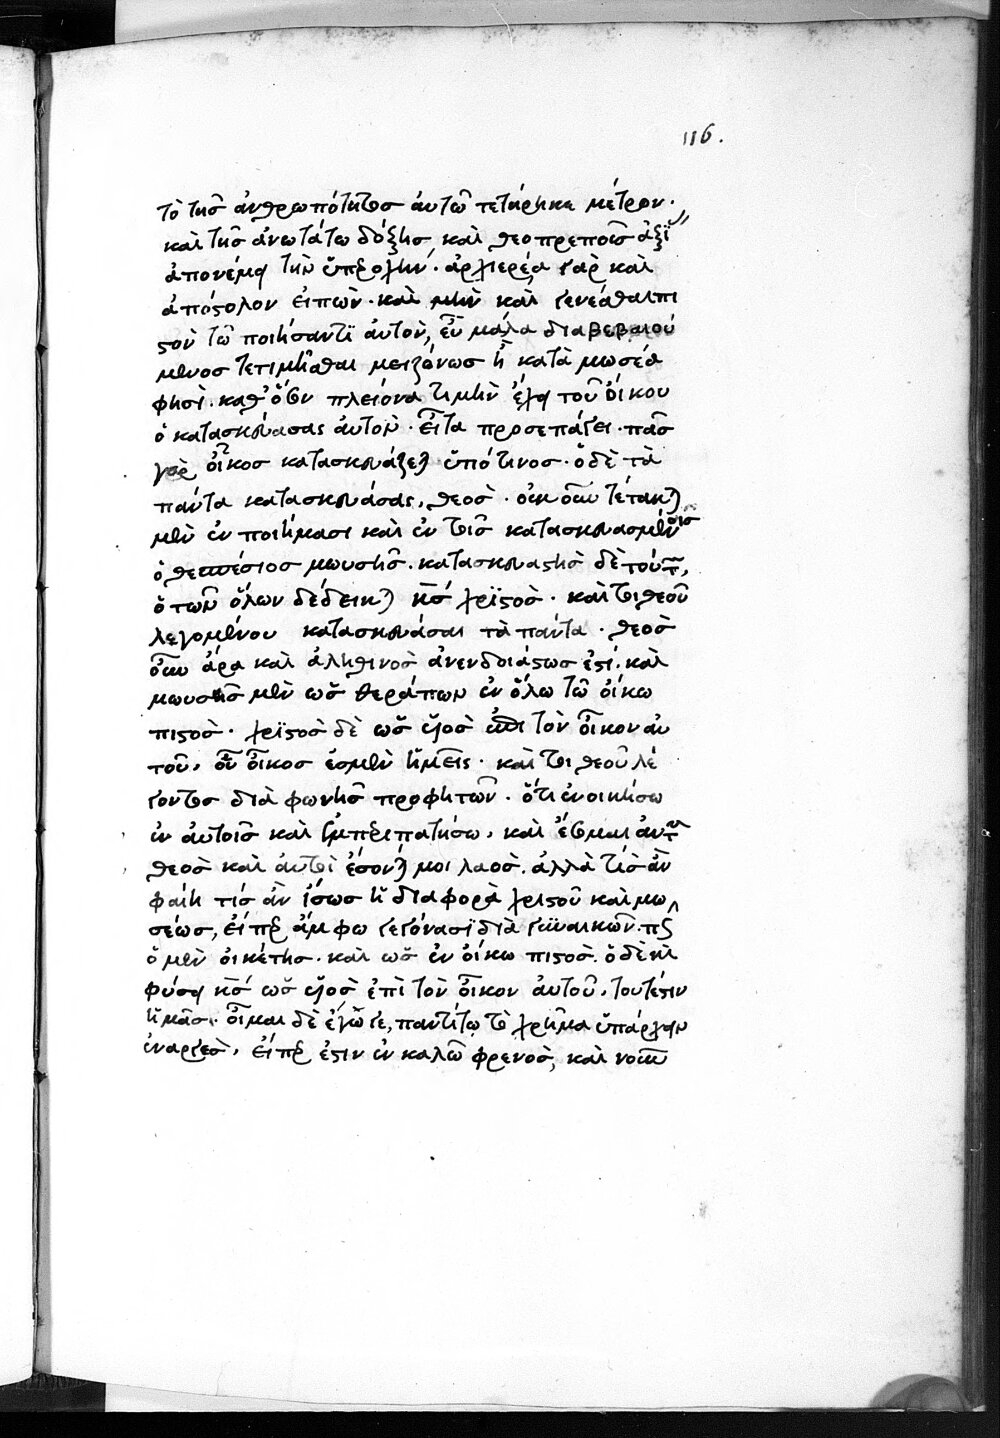 116.
τὸ τῆς ἀνθρωπότητος ἀυτῶ τετήρηκε μέτρον.
καὶ τῆς ἀνωτάτω δόξης καὶ θεοπρεποῦς ἀξί
ἀπονέμει τὴν ὑπεροχήν. ἀρχιερέα γὰρ καὶ
ἀπόστολον ἐιπὼν. καὶ μὴν καὶ γενέσθαι πι
στὸν τῶ ποιήσαντι ἀυτὸν, εὖ μάλα διαβεβαιού
μενος τετιμῆσθαι μειζόνως ἢ κατὰ μωσέα
φησὶ. καθ' ὅσον πλείονα τιμὴν ἔχει τοῦ ὄικου
ὁ κατασκευάσας ἀυτόν. εἶτα προσεπάγει. πᾶς
γὰρ οἶκος κατασκευάζεται ὑπό τινος. ὁ δὲ τὰ
πάντα κατασκευάσας, θεὸς. οὐκοῦν τέτακται
μὲν ἐν ποιήμασι καὶ ἐν τοῖς κατασκευασμένοις
ὁ θεσπέσιος μωυσῆς. κατασκευαστὴς δὲ τούτων,
ὁ τῶν ὅλων δέδεικται χριστὸς. καὶ τοι θεοῦ
λεγομένου κατασκευάσαι τὰ πάντα. θεὸς
οὖν ἄρα καὶ ἀληθινὸς ἀνενδοιάστως ἐστί. καὶ
μωυσῆς μὲν ὡς θεράπων ἐν ὅλω τῶ ὄικω
πιστὸς. χριστὸς δὲ ὡς υἱὸς ἐπὶ τὸν οἶκον ἀυ
τοῦ, οὗ οἶκος ἐσμὲν ἡμεῖς. καὶ τοι θεοῦ λέ
γοντος διὰ φωνῆς προφητῶν. ὅτι ἐνοικήσω
ἐν ἀυτοῖς καὶ ἐμπεριπατήσω, καὶ ἔσομαι ἀυτῶν
θεὸς καὶ ἀυτοὶ ἔσονται μοι λαὸς. ἀλλὰ τίς ἂν
φαίη τίς ἂν ἴσως ἡ διαφορὰ χριστοῦ καὶ μω
σέως, ἔιπερ ἄμφω γεγόνασι διὰ γυναικῶν.
ὁ μὲν ὀικέτης. καὶ ὡς ἐν ὄικω πιστὸς. ὁ δὲ
φύσει ὡς υἱὸς ἐπὶ τὸν οἶκον ἀυτοῦ, τουτέστιν
ἡμᾶς. οἶμαι δὲ ἔγωγε, παντί τω τὸ χρῆμα ὑπάρχειν
ἐναργὲς, ἔιπερ ἐστιν ἐν καλῶ φρενὸς, καὶ νοῦν